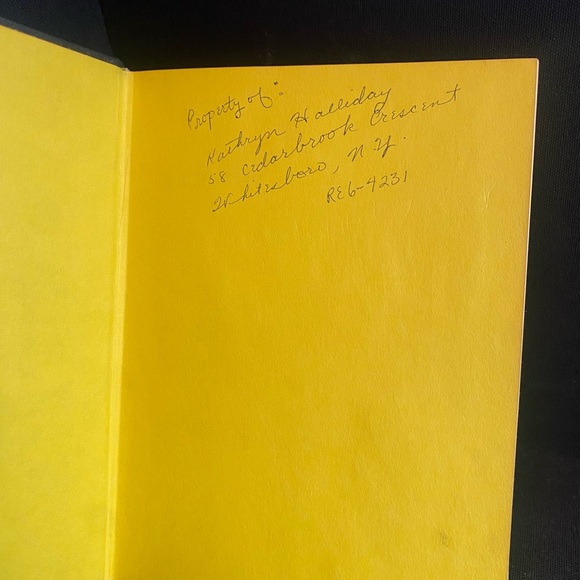 Property of:
Kathryn Halliday
58 Cedarbrook Crescent
Whitesboro, N.Y.
RE6-4231